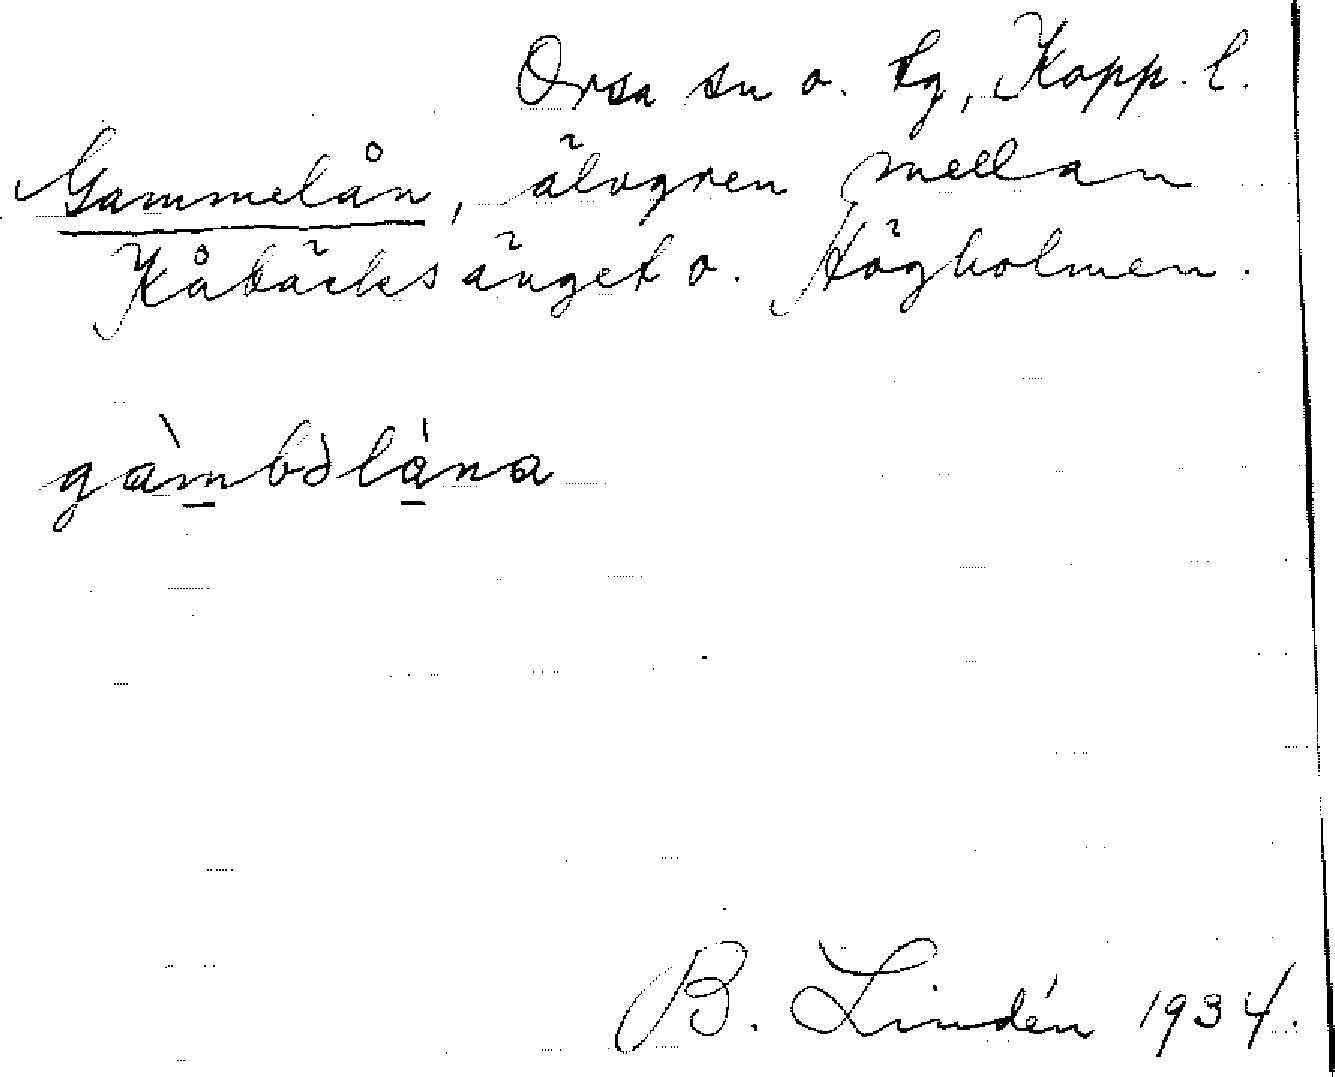 Orsa sn o. tg, Kopp. l.
Gammelån, älvgren mellan
Kåbäcksänget o. Högholmen.
gàmbəlána
B. Lindén 1934.